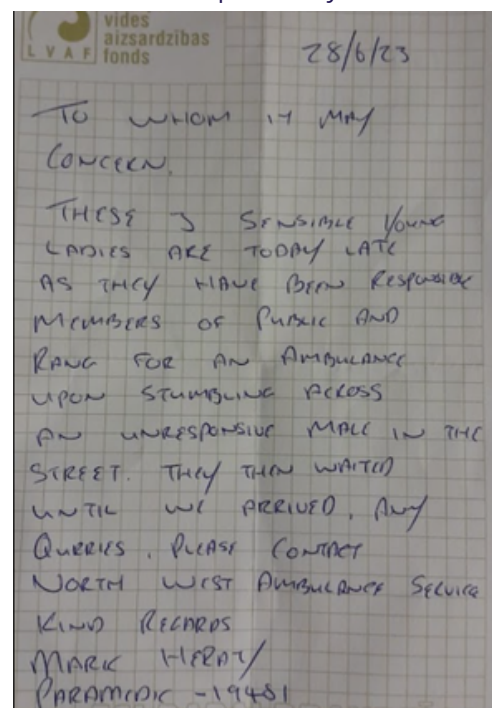 vides
aizsardzības
LVAF fonds
28/6/23
TO WHOM IT MAY
CONCERN.
THESE 3 SENSIBLE YOUNG
LADIES ARE TODAY LATE
AS THEY HAVE BEEN RESPONSIBLE
MEMBERS OF PUBLIC AND
RANG FOR AN AMBULANCE
UPON STUMBLING ACROSS
AN UNRESPONSIVE MALE IN THE
STREET. THEY THEN WAITED
UNTIL WE ARRIVED. ANY
QUERIES, PLEASE CONTACT
NORTH WEST AMBULANCE SERVICE
KIND REGARDS
MARK
PARAMEDIC - 19481